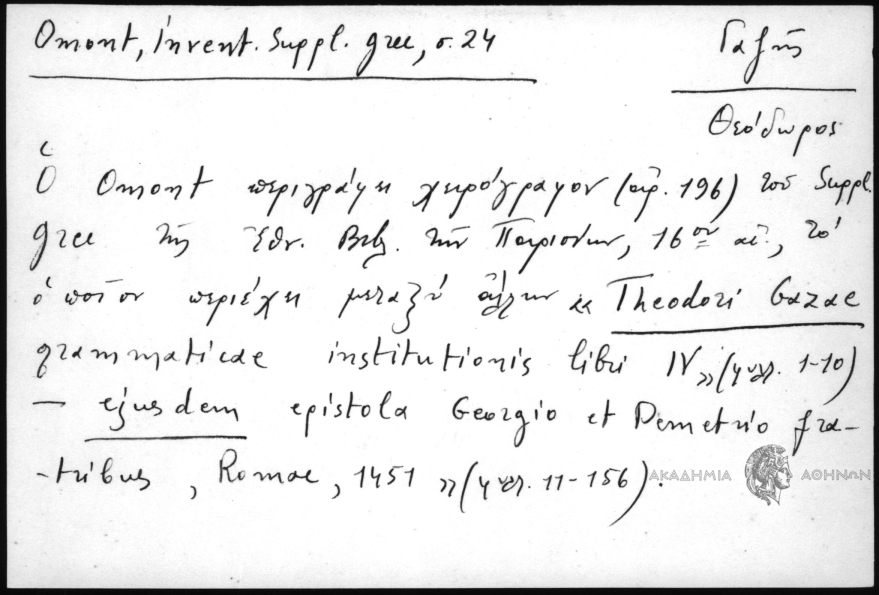 Omont, Invent. Suppl. grec, σ. 24
Γαζῆς
Θεόδωρος
Ὁ Omont περιγράφει χειρόγραφον (ἀρ. 196) τοῦ Suppl.
grec τῆς Ἐθν. Βιβλ. τῶν Παρισίων, 16ον αἰ., τὸ
ὁποῖον περιέχει μεταξὺ ἄλλων «Theodori Gazae
grammaticae institutionis libri IV» (φυλ. 1-10)
— ejusdem epistola Georgio et Demetrio fra-
-tribus, Romae, 1451 » (φυλ. 11-156).
ΑΚΑΔΗΜΙΑ ΑΘΗΝΩΝ